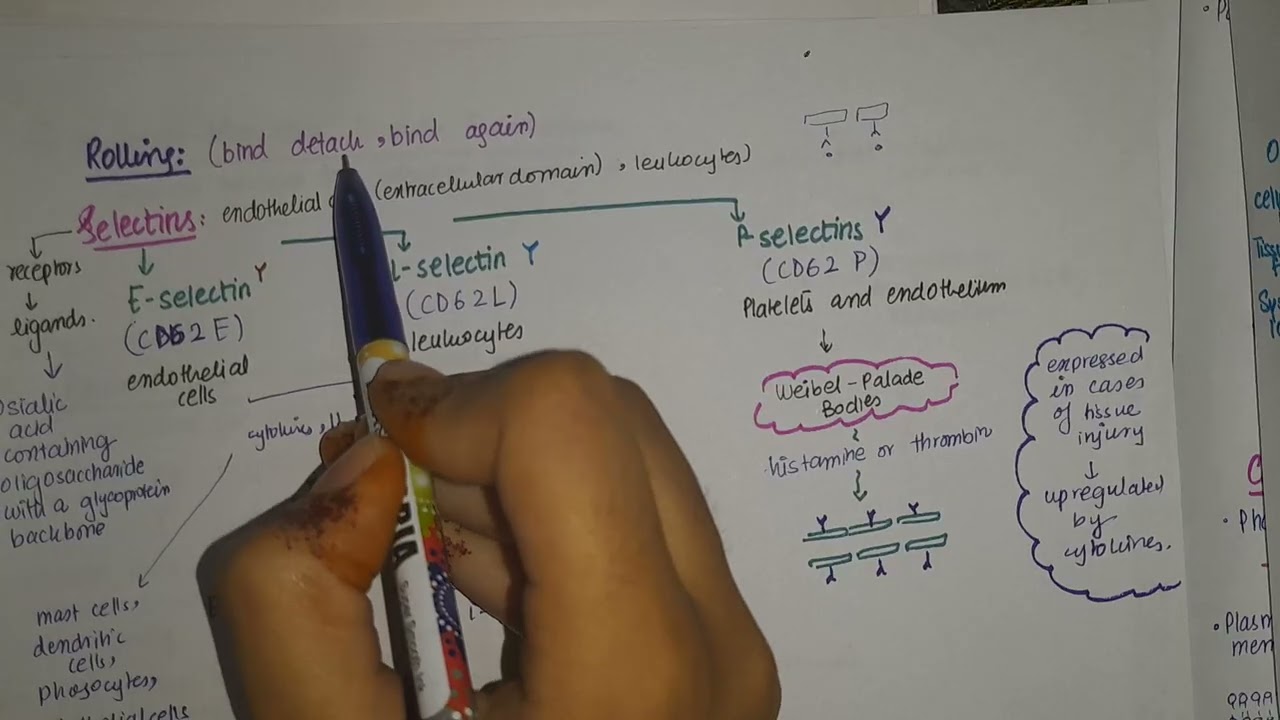 Rolling: (bind detach, bind again)
Selectins: endothelial (extracellular domain), leukocytes)
receptors
ligands.
sialic
acid
containing
oligosaccharide
with a glycoprotein
backbone
E-selectin
(CD62E)
endothelial
cells
L-selectin
(CD62L)
leukocytes
cytokines,
mast cells,
dendritic
cells,
phagocytes,
P-selectins
(CD62 P)
Platelets and endothelium
Weibel-Palade
Bodies
histamine or thrombin
expressed
in cases
of tissue
injury
upregulated
by
cytokines.